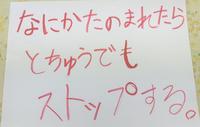 なにかたのまれたら
とちゅうでも
ストップする。